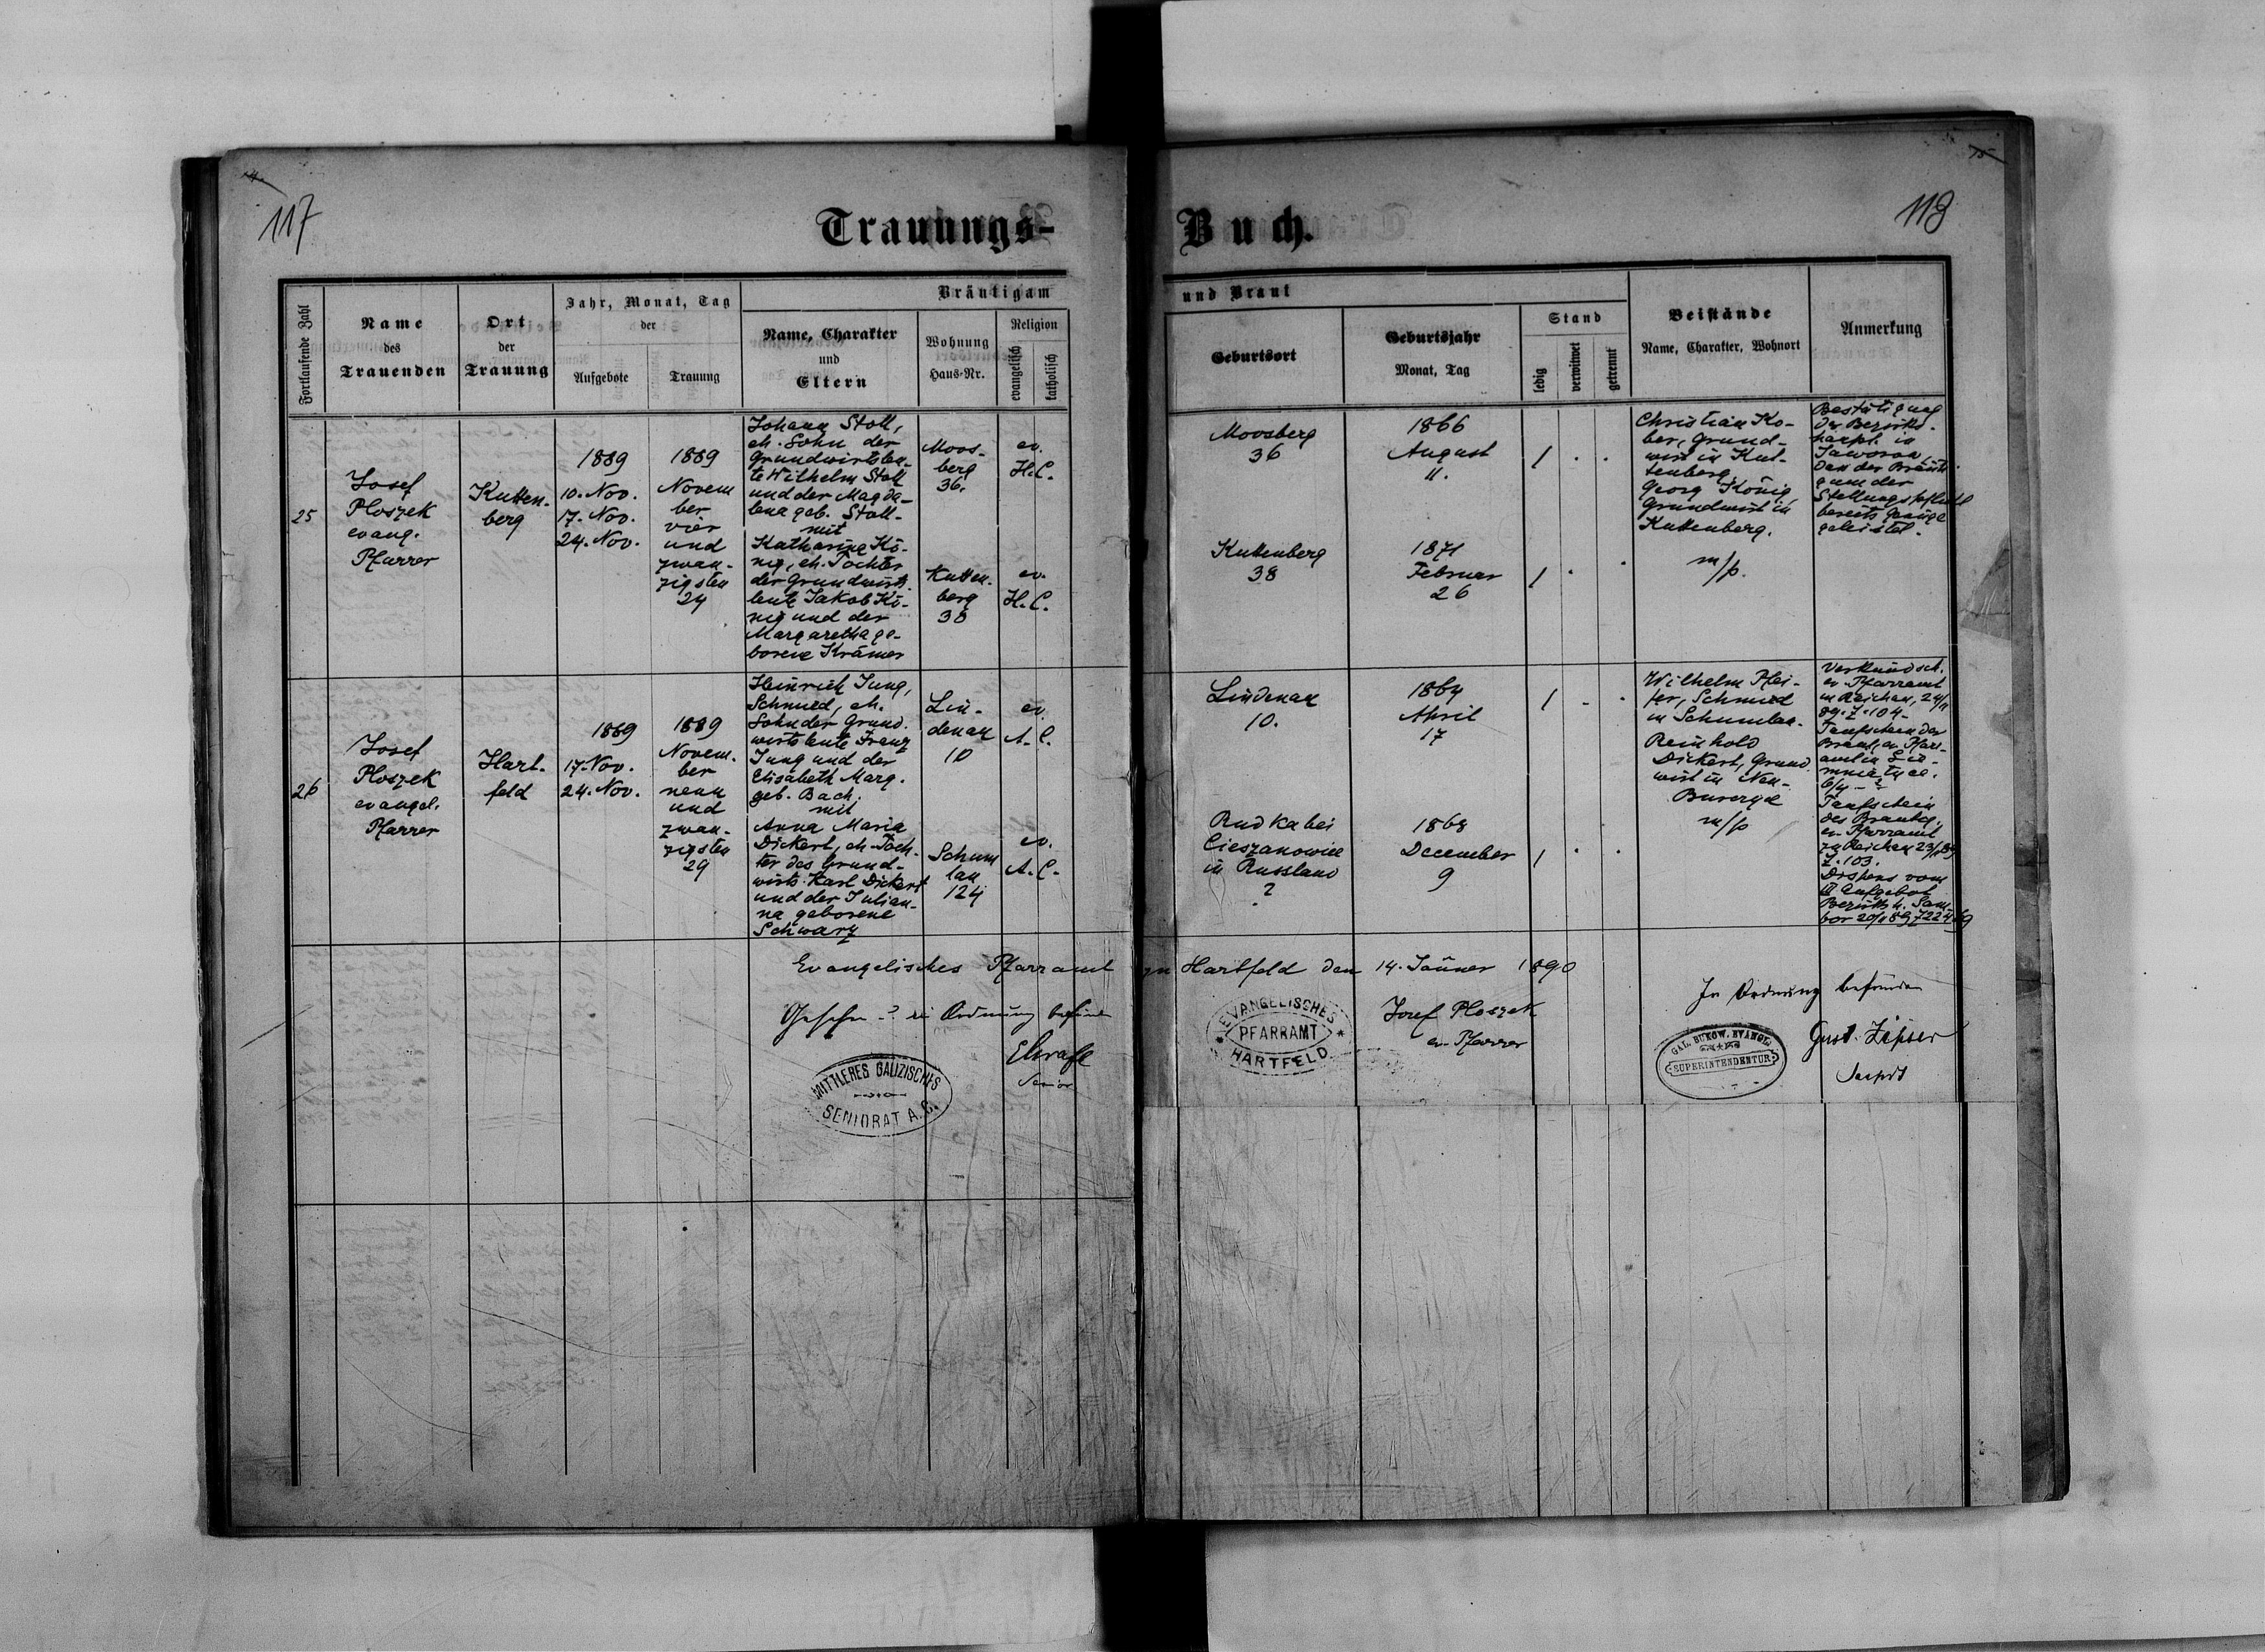 117
Trauungs-
Buch.
118
Fortlaufende Zahl
Name
des
Trauenden
Ort
der
Trauung
Jahr, Monat, Tag
der
Aufgebote
Trauung
Bräutigam
Name, Charakter
und
Eltern
Wohnung
Haus-Nr.
Religion
evangelisch
katholisch
und Braut
Geburtsort
Geburtsjahr
Monat, Tag
Stand
ledig
verwitwet
getrennt
Beistände
Name, Charakter, Wohnort
Anmerkung
25
Josef
Ploszek
evang.
Pfarrer
Kutten-
berg
1889
10. Nov.
17. Nov.
24. Nov.
1889
Novem
ber
vier
und
zwan-
zigsten
24
Johann Stoll,
eh. Sohn der
Grundwirtsleu-
te Wilhelm Stoll
und der Magda-
lena geb. Stoll-
mit
Katharina Kö-
nig, eh. Tochter
der Grundwirts
leute Jakob Kö-
nig und der
Margaretha ge-
borene Krämer
Moos-
berg
36.
ev.
H. C.
Kutten-
berg
38
ev.
H. C.
Moosberg
36
1866
August
11.
1 . .
Kuttenberg
38
1871
Februar
26
1 . .
Christian Ko-
ber, Grund-
wirt in Kut-
tenberg,
Georg König,
Grundwirt in
Kuttenberg.
m/p.
Bestätigung
der Bezirks-
in
Jaworow,
dass der Bräuti-
gam der
Stellungspflicht
bereits Genüge
geleistet.
26
Josef
Ploszek
evangel.
Pfarrer
Hart-
feld
1889
17. Nov.
24. Nov.
1889
Novem-
ber
neun
und
zwan-
zigsten
29
Heinrich Jung,
Schmied, eh.
Sohn der Grund-
wirtsleute Franz
Jung und der
Elisabeth Marg.
geb. Bach.
mit
Anna Maria
Dickert, eh. Toch-
ter des Grund-
wirts Karl Dickert
und der Julian-
na geborene
Schwarz
Lin-
denau
10
ev.
A. C.
Schum
lau
124
ev.
A. C.
Lindenau
10.
1864
April
17
1 . .
Rudka bei
Cieszanowice
in Russland
?
1868
December
9
1 . .
Wilhelm Pfei-
fer, Schmied
in Schumlau.
Reinhold
Dickert, Grund
wirt in Neu-
m/p
Verkündsch.
ev. Pfarramt
in Reichau, 24/11
89. Z. 104-
Taufschein der
Braut, ev. Pfarr-
amt in
Taufschein
des Bräutig.
ev. Pfarramt
zu Reichau 23/11 89
Z. 103.
Dispens vom
III Aufgebot
Bezirksh. Sam-
bor 20/11 89
Evangelisches Pfarramt zu Hartfeld den 14. Jänner 1890
Josef Ploszek
ev. Pfarrer
EVANGELISCHES
PFARRAMT
HARTFELD
in Ordnung
Senior
MITTLERES GALIZISCHES
SENIORAT A. C.
In Ordnung befunden
Gust. Zipser
GAL. BUKOW. EVANGL.
SUPERINTENDENTUR